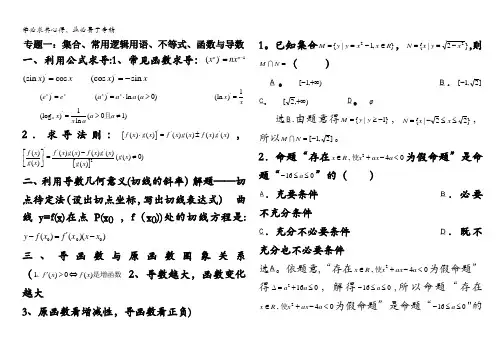 学必求其心得，业必贵于专精
专题一：集合、常用逻辑用语、不等式、函数与导数
一、利用公式求导:1、常见函数求导: (xⁿ)′ = nxⁿ⁻¹
(sin x)′ = cos x (cos x)′ = −sin x
(eˣ)′ = eˣ (aˣ)′ = aˣ·ln a (a > 0) (ln x)′ = 1/x
(logₐ x)′ = 1/(x ln a) (a > 0且a ≠ 1)
2．求导法则：[f(x)·g(x)]′ = f(x)g(x) ± f(x)g(x)，
[f(x)/g(x)]′ = (f(x)g(x) − f(x)g(x))/[g(x)]² (g(x) ≠ 0)
二、利用导数几何意义(切线的斜率）解题——切
点待定法(设出切点坐标,写出切线表达式) 曲
线 y=f(x)在点 P(x₀ , f（x₀))处的切线方程是:
y − f(x₀) = f′(x₀)(x − x₀)
三、导函数与原函数图象关系
(1. f′(x) > 0 ⇔ f(x)是增函数 2、导数越大，函数变化
越大
3、原函数看增减性，导函数看正负)
1。已知集合 M = {y | y = x² − 1, x ∈ R}，N = {x | y = √(2 − x²)},则
M∩N =（ ）
A。 [−1,+∞) B．[−1,√2]
C． [√2,+∞) D。 φ
选B.由题意得 M = {y | y ≥ −1}，N = {x | −√2 ≤ x ≤ √2}，
所以 M∩N = [−1,√2]。
2．命题“存在 x ∈ R，使x² + ax − 4a < 0 为假命题”是命
题“−16 ≤ a ≤ 0”的（ ）
A．充要条件 B．必要
不充分条件
C．充分不必要条件 D．既不
充分也不必要条件
选A。依题意,“存在 x ∈ R，使x² + ax − 4a < 0 为假命题”
得 Δ = a² + 16a ≤ 0，解得 −16 ≤ a ≤ 0 ,所以命题“存在
x ∈ R，使x² + ax − 4a < 0 为假命题”是命题“−16 ≤ a ≤ 0"的